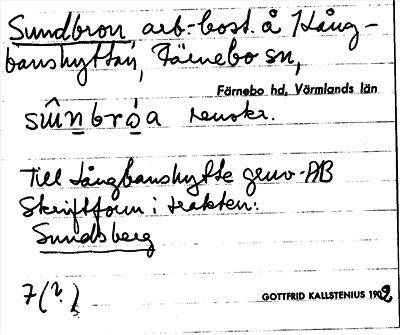 Sundbron, arb.-bost. å Lång-
banshyttan, Färnebo sn,
Färnebo hd, Värmlands län
su̇nbrȯa renskr.
Till Långbanshytte gruv-AB
Skriftform i trakten:
Sundsberg
7(?)
GOTTFRID KALLSTENIUS 1902